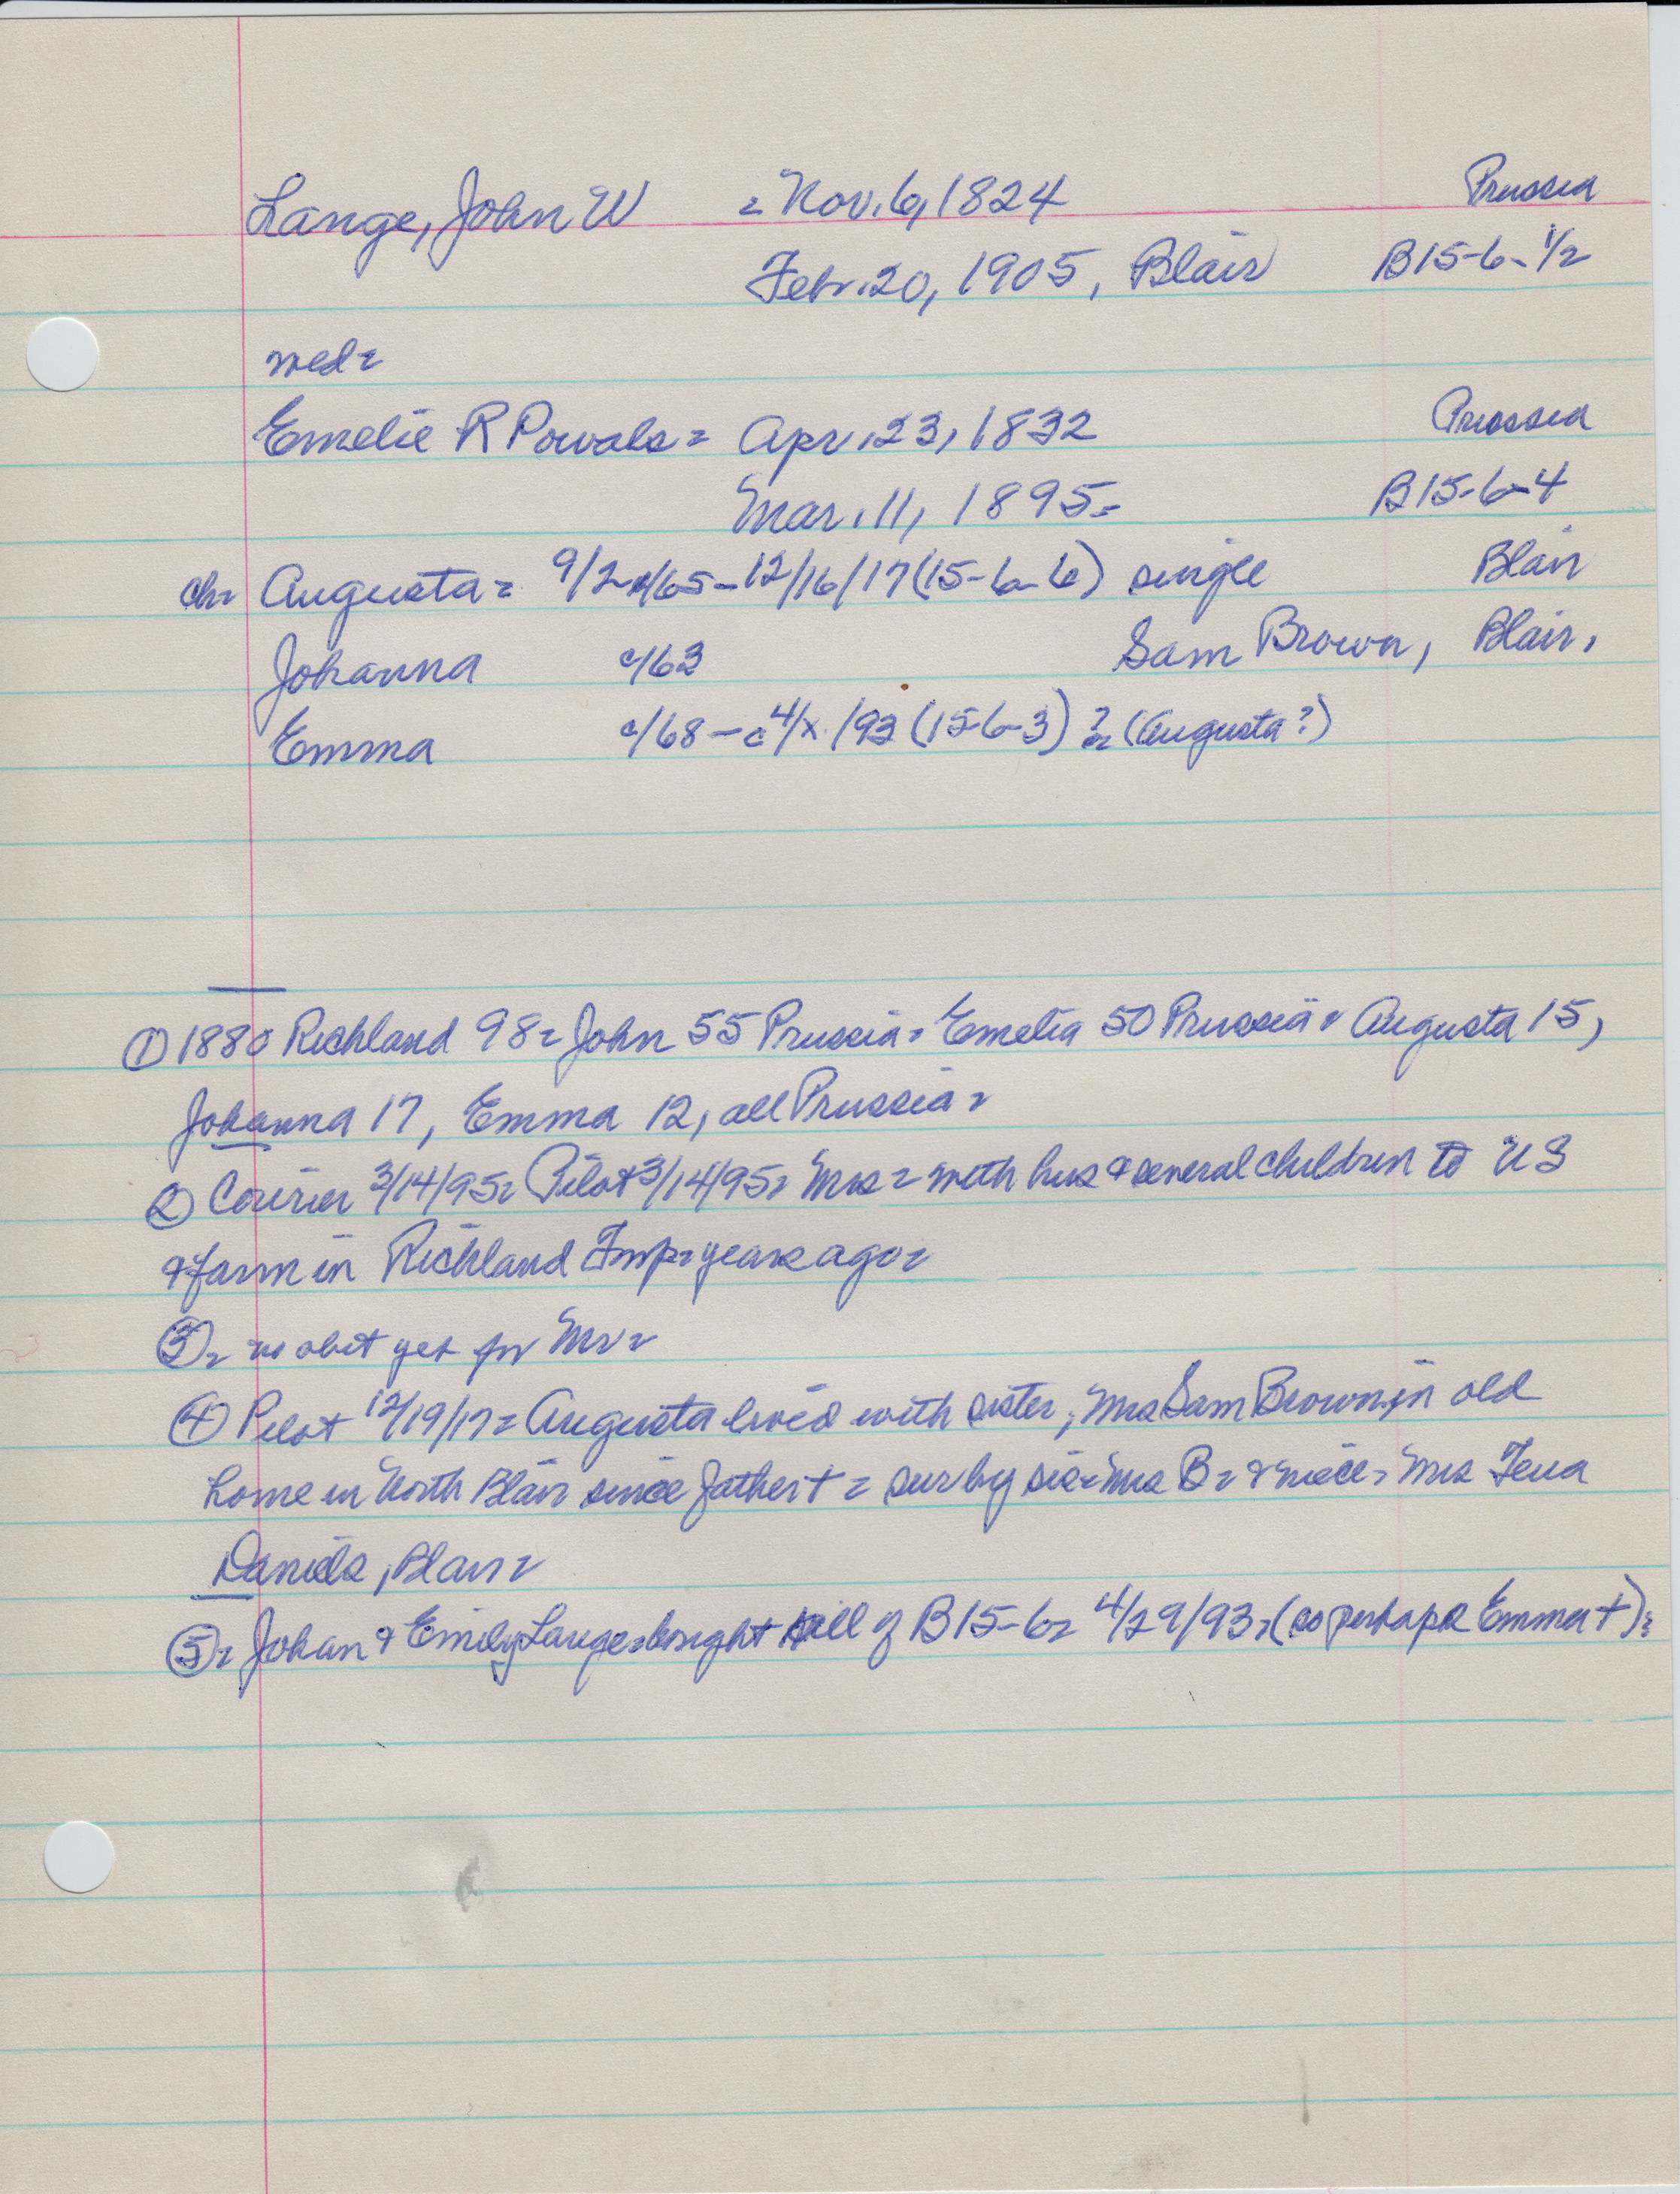 Lange, John W = Nov. 6, 1824 Prussia
Febr. 20, 1905, Blair B15-6-1/2
wed=
Emelie R Powals = Apr. 23, 1832 Prussia
Mar. 11, 1895= B15-6-4
ch= Augusta = 9/2 /65-12/16/17 (15-6-6) single Blair
Johanna c/63 Sam Brown, Blair,
Emma c/68 - c 4/x /93 (15-6-3) ?= (Augusta?)
① 1880 Richland 98= John 55 Prussia= Emelia 50 Prussia= Augusta 15,
Johanna 17, Emma 12, all Prussia=
② Courier 3/14/95= Pilot 3/14/95= Mrs = with hus & several children to US
& farm in Richland Tmp= years ago=
③= no obit yet for Mr=
④ Pilot 12/19/17= Augusta lived with sister, Mrs Sam Brown, in old
home in North Blair since father + = sur by sis= Mrs B= & niece= Mrs Tena
Daniels, Blair=
⑤= Johan & Emily Lange= bought all of B15-6= 4/29/93= (so perhaps Emma +)=